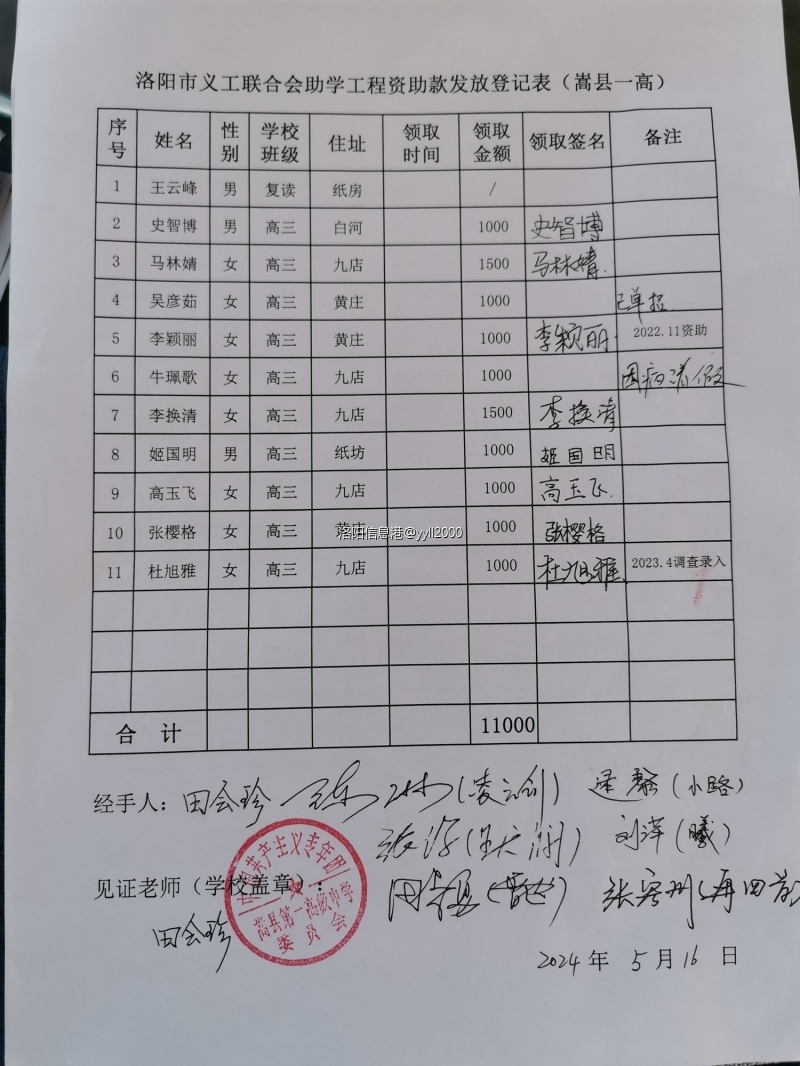 洛阳市义工联合会助学工程资助款发放登记表（嵩县一高）
序号 姓名 性别 学校班级 住址 领取时间 领取金额 领取签名 备注
1 王云峰 男 复读 纸房 /
2 史智博 男 高三 白河 1000 史智博
3 马林婧 女 高三 九店 1500 马林婧
4 吴彦茹 女 高三 黄庄 1000 已单招
5 李颖丽 女 高三 黄庄 1000 李颖丽 2022.11资助
6 牛珮歌 女 高三 九店 1000 因病请假
7 李换清 女 高三 九店 1500 李换清
8 姬国明 男 高三 纸坊 1000 姬国明
9 高玉飞 女 高三 九店 1000 高玉飞
10 张樱格 女 高三 黄庄 1000 张樱格
洛阳信息港@yyll2000
11 杜旭雅 女 高三 九店 1000 杜旭雅 2023.4调查录入
合 计 11000
经手人：田会珍 (凌云剑) (小路)
刘萍(曦)
见证老师（学校盖章）：
田会珍
共产主义青年团
嵩县第一高级中学
委员会
2024 年 5 月 16 日